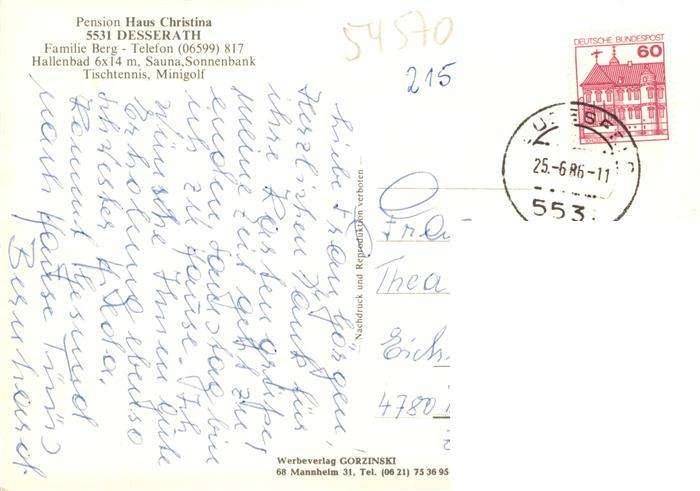 Pension Haus Christina
5531 DESSERATH
Familie Berg - Telefon (06599) 817
Hallenbad 6x14 m, Sauna, Sonnenbank
Tischtennis, Minigolf
54570
215
DEUTSCHE BUNDESPOST
60
25.-6.86-11
553
Liebe Frau
Herzlichen Dank für
ihre Karten grüße,
meine zeit geht zu
enden Samstag bin
ich zu Hause. Ich
wünsche Ihnen gute
Erholung ebenso
Schwester Hilda.
Kommt gesund
nach Hause
Nachdruck und Reproduktion verboten
Frau
Thea
Eich
4780
Werbeverlag GORZINSKI
68 Mannheim 31, Tel. (06 21) 75 36 95